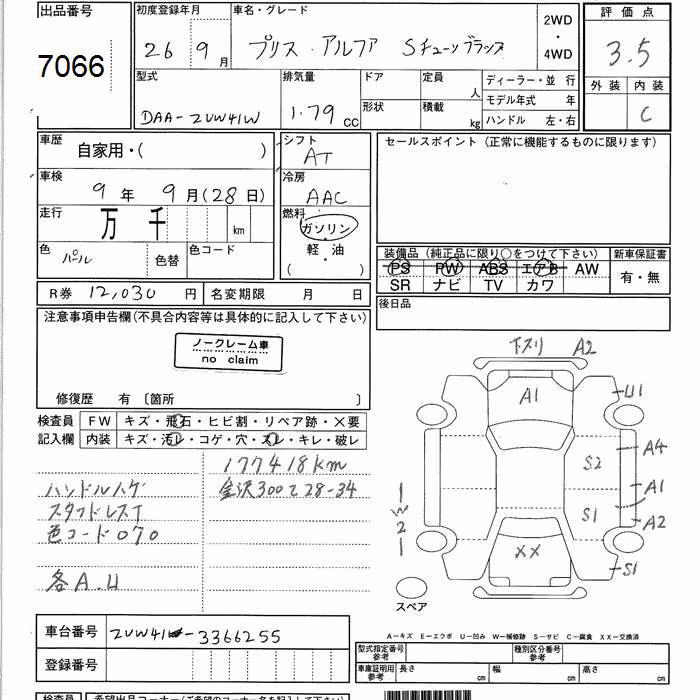 出品番号 初度登録年月 車名・グレード 2WD・4WD 評価点
7066 26 9月 プリス アルファ Sチューンブラック 3.5
型式 排気量 ドア 定員 人 ディーラー・並行 外装 内装
DAA-ZVW41W 1.79 cc 形状 積載 kg モデル年式 年 C
ハンドル 左・右
車歴 自家用・( ) シフト AT セールスポイント (正常に機能するものに限ります)
車検 9年 9月(28日) 冷房 AAC
走行 万 千 km 燃料 ガソリン
色 パール 色替 色コード 軽・油
( )
装備品 (純正品に限り○をつけて下さい) 新車保証書
PS PW ABS エアB AW 有・無
SR ナビ TV カワ
R券 12,030 円 名変期限 月 日 後日品
注意事項申告欄(不具合内容等は具体的に記入して下さい)
ノークレーム車
no claim
修復歴 有 〔箇所 〕
検査員 FW キズ・飛石・ヒビ割・リペア跡・×要
記入欄 内装 キズ・汚レ・コゲ・穴・スレ・キレ・破レ
177418km
ハンドルハゲ 金沢300て28-34
スタッドレスT
色コード070
各A.U
下スリ A2
A1 U1
A4
S2
A1
S1
A2
XX
S1
スペア
A-キズ E-エクボ U-凹み W-補修跡 S-サビ C-腐食 XX-交換済
車台番号 ZVW41-3366255
登録番号
型式指定番号 参考 種別区分番号 参考
車庫証明用 参考 長さ cm 幅 cm 高さ cm
検査員 希望出品コーナー(ご希望のコーナー名を記入して下さい)